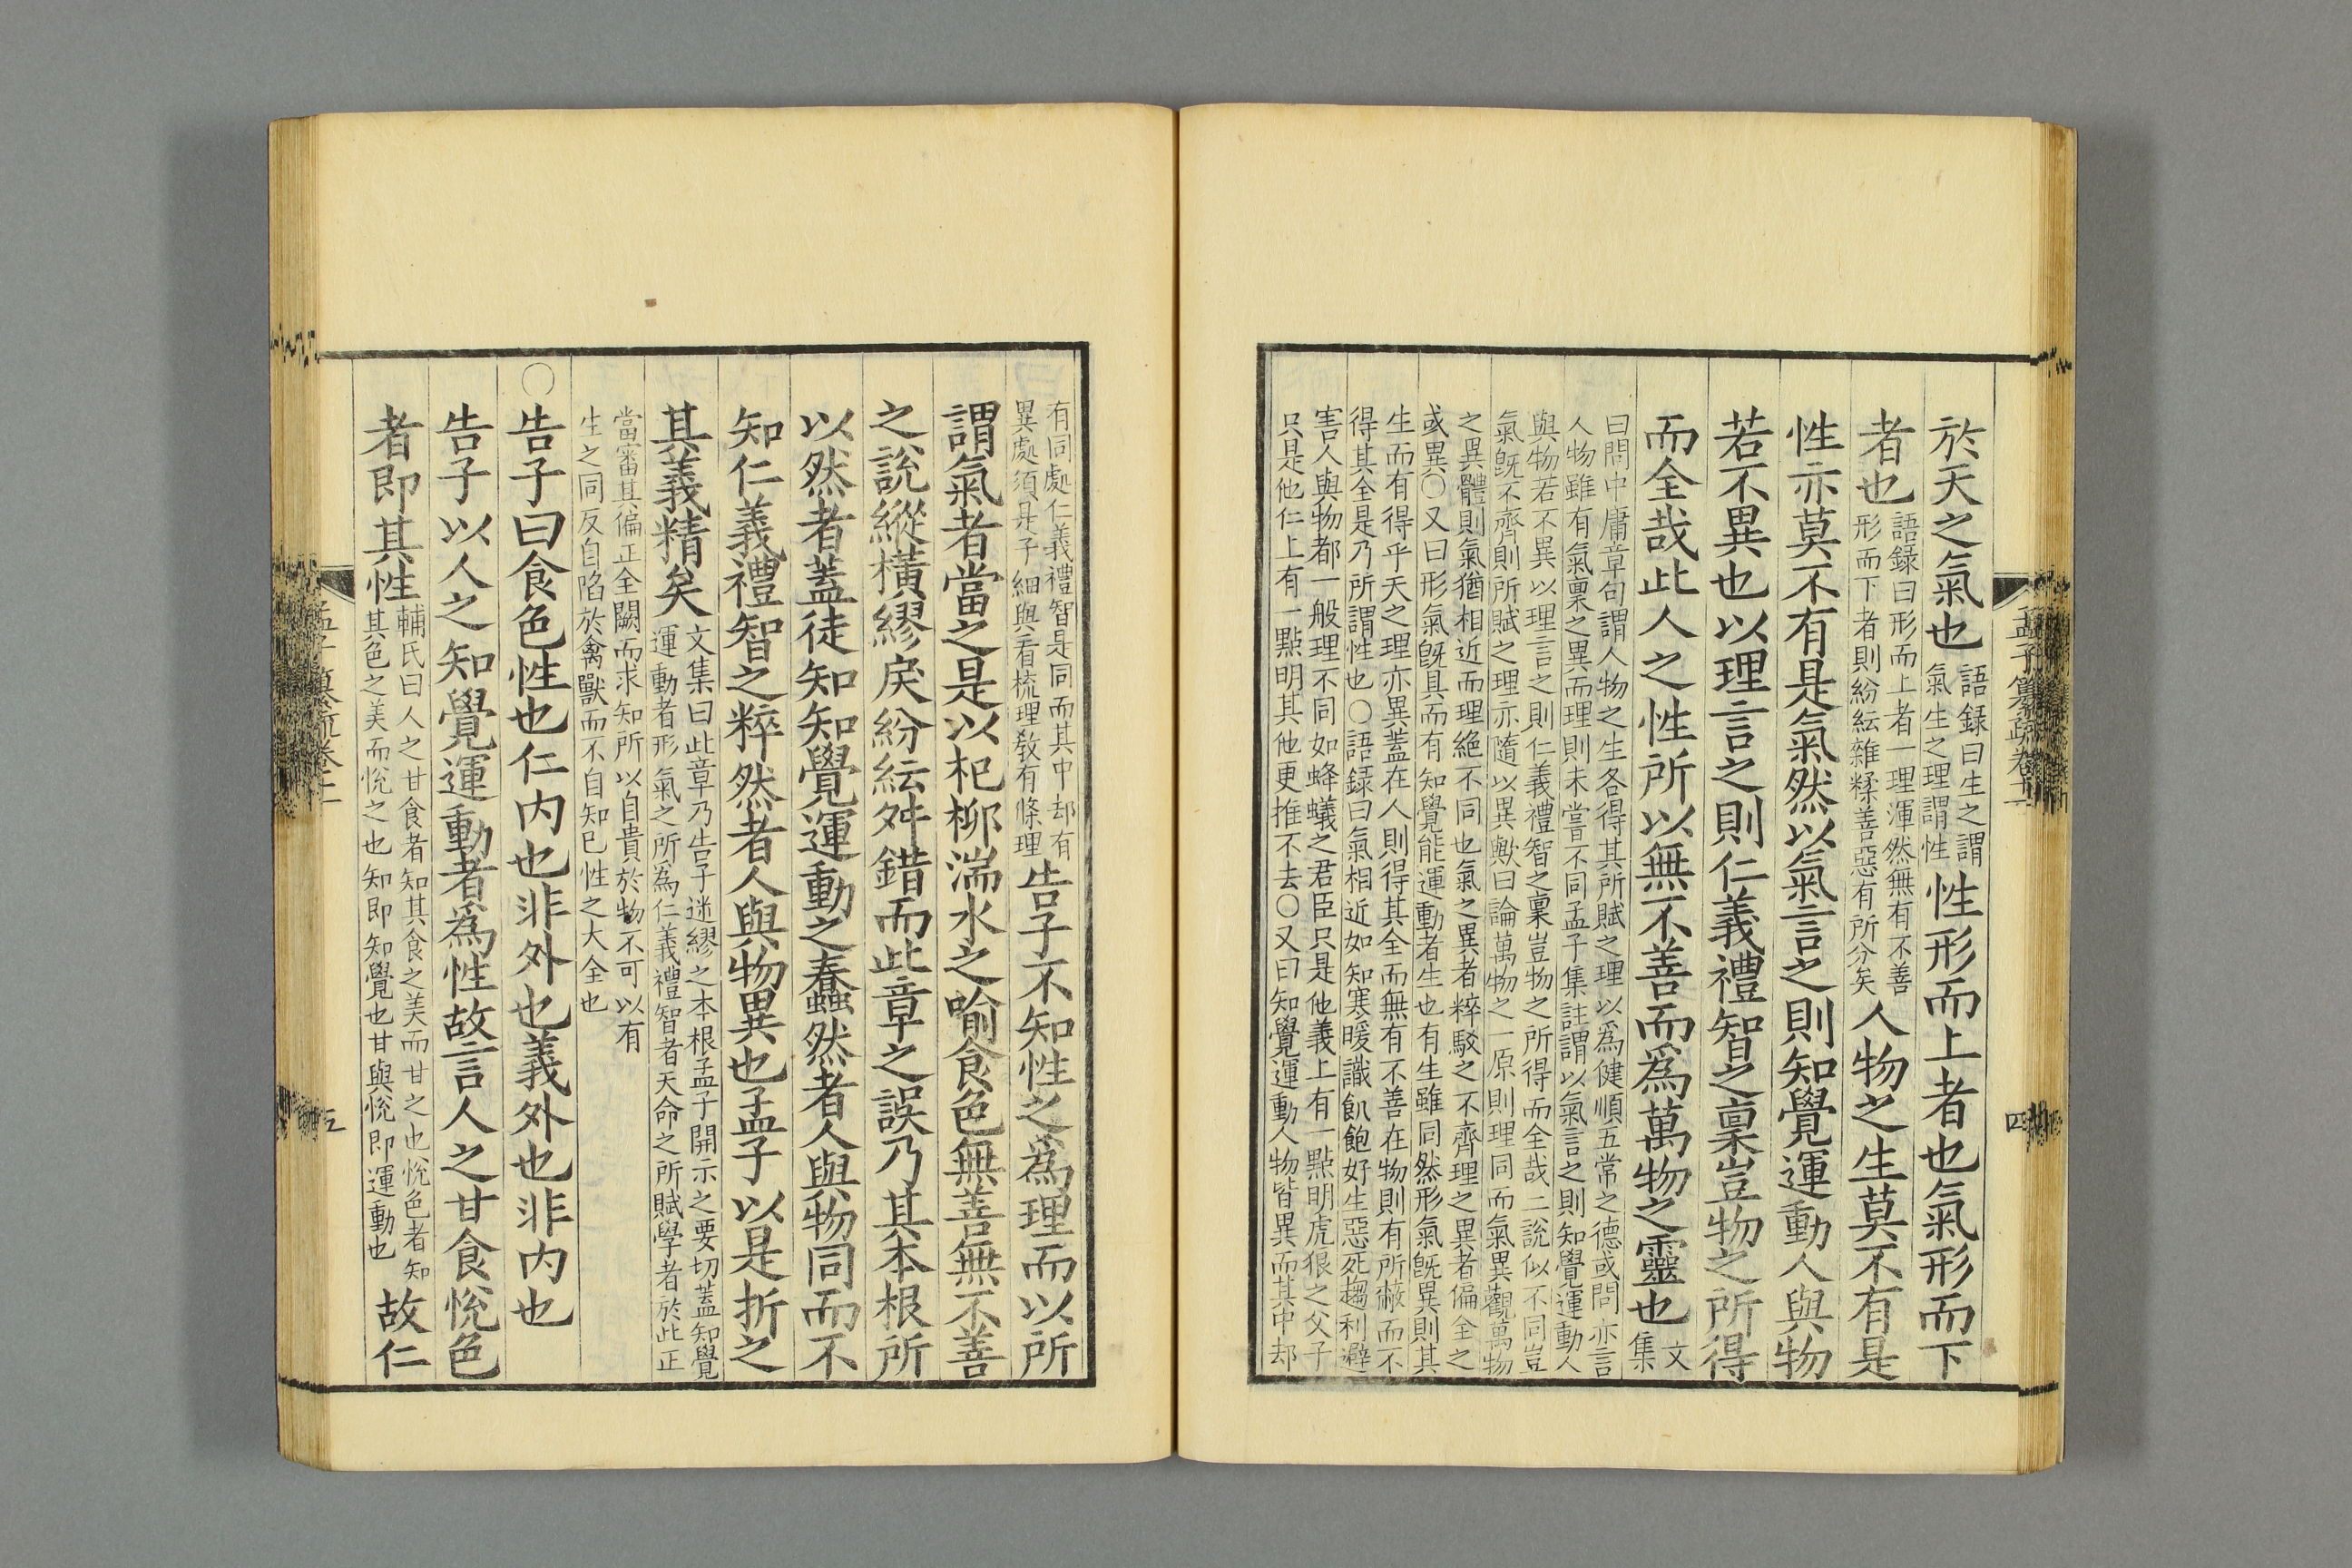 於天之氣也語録曰生之謂氣生之理謂性性形而上者也氣形而下
者也語録曰形而上者一理渾然無有不善形而下者則紛紜雜糅善惡有所分矣人物之生莫不有是
性亦莫不有是氣然以氣言之則知覺運動人與物
若不異也以理言之則仁義禮智之稟豈物之所得
而全哉此人之性所以無不善而爲萬物之靈也文集
曰問中庸章句謂人物之生各得其所賦之理以爲健順五常之德或問亦言
人物雖有氣稟之異而理則未嘗不同孟子集註謂以氣言之則知覺運動人
與物若不異以理言之則仁義禮智之稟豈物之所得而全哉二說似不同豈
氣旣不齊則所賦之理亦隨以異歟曰論萬物之一原則理同而氣異觀萬物
之異體則氣猶相近而理絶不同也氣之異者粹駁之不齊理之異者偏全之
或異○又曰形氣旣具而有知覺能運動者生也有生雖同然形氣旣異則其
生而有得乎天之理亦異蓋在人則得其全而無有不善在物則有所蔽而不
得其全是乃所謂性也○語録曰氣相近如知寒暖識飢飽好生惡死趨利避
害人與物都一般理不同如蜂蟻之君臣只是他義上有一點明虎狼之父子
只是他仁上有一點明其他更推不去○又曰知覺運動人物皆異而其中却
孟子纂疏卷十一
四
有同處仁義禮智是同而其中却有異處須是子細與看梳理敎有條理告子不知性之爲理而以所
謂氣者當之是以杞柳湍水之喻食色無善無不善
之說縱橫繆戾紛紜舛錯而此章之誤乃其本根所
以然者蓋徒知知覺運動之蠢然者人與物同而不
知仁義禮智之粹然者人與物異也孟子以是折之
其義精矣文集曰此章乃告子迷繆之本根孟子開示之要切蓋知覺運動者形氣之所爲仁義禮智者天命之所賦學者於此正
當審其偏正全闕而求知所以自貴於物不可以有
生之同反自陷於禽獸而不自知已性之大全也
○告子曰食色性也仁内也非外也義外也非内也
告子以人之知覺運動者爲性故言人之甘食悅色
者即其性輔氏曰人之甘食者知其食之美而甘之也悅色者知其色之美而悅之也知即知覺也甘與悅即運動也故仁
五